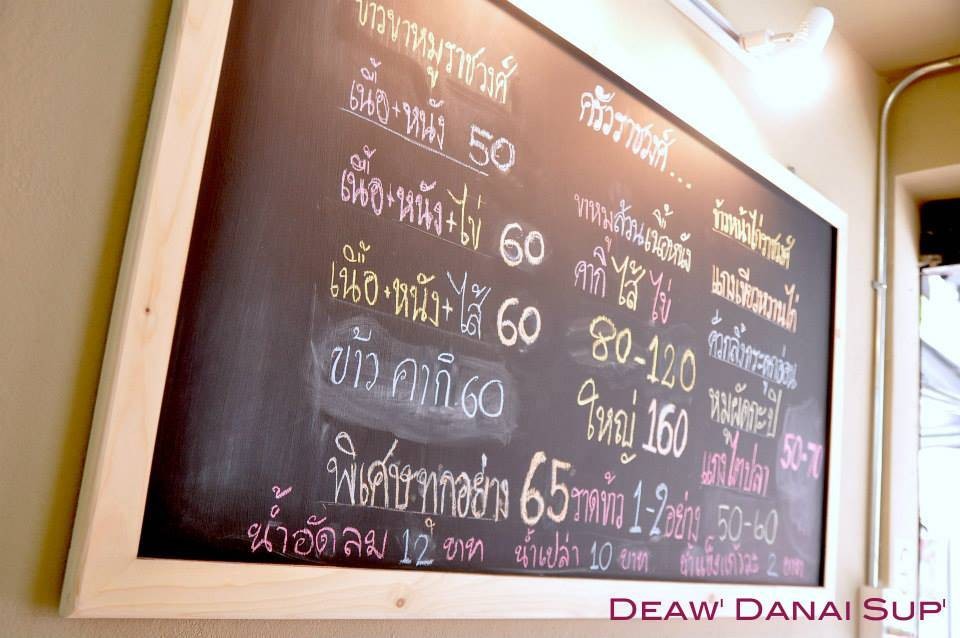 ข้าวขาหมูราชวงศ์
เนื้อ+หนัง 50
เนื้อ+หนัง+ไข่ 60
เนื้อ+หนัง+ไส้ 60
ข้าว คากิ 60
พิเศษทุกอย่าง 65
ครัวราชวงศ์...
ขาหมูล้วน เนื้อหนัง
คากิ ไส้ ไข่
80-120
ใหญ่ 160
ข้าวหน้าไก่ราชวงศ์
แกงเขียวหวานไก่
คั่วกลิ้งกระดูกอ่อน
หมูผัดกะปิ
แกงไตปลา 50-70
ราดข้าว 1-2อย่าง 50-60
น้ำอัดลม 12 บาท น้ำเปล่า 10 บาท น้ำแข็งแก้วละ 2 บาท
Deaw' Danai Sup'